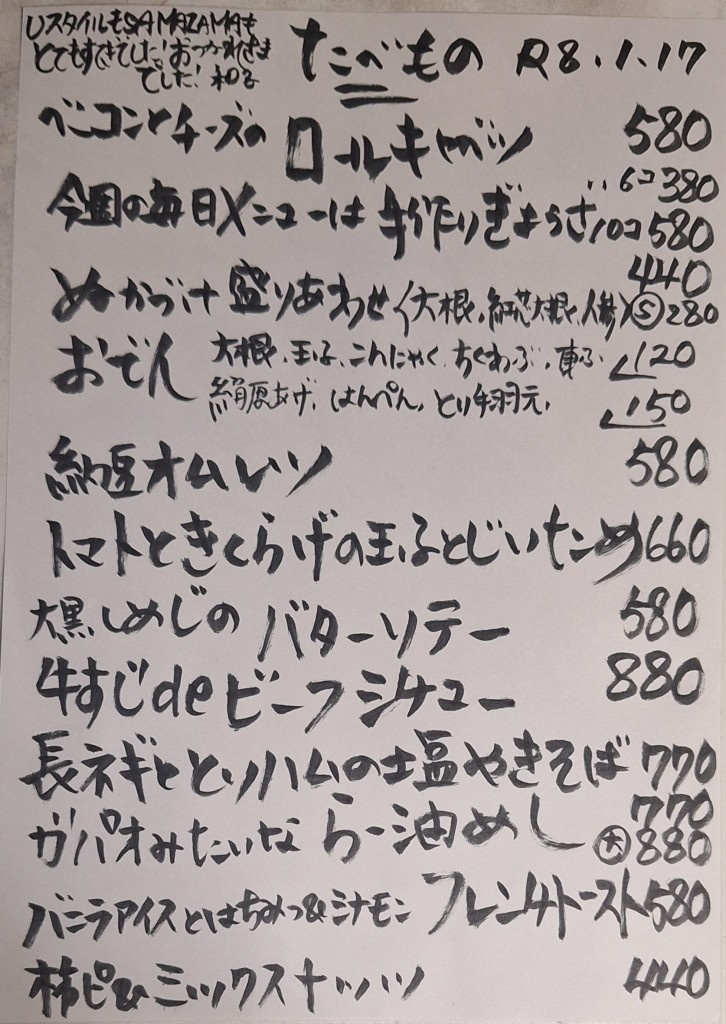 UスタイルもSAMAZAMAも
とてもすてきでした!おつかれさま
でした!
たこべもの R8.1.17
ベーコンとチーズの ロールキャベツ 580
今週の毎日メニューは 手作りぎょうざ 6コ 380
10コ 580
ぬかづけ 盛りあわせ (大根、紅芯大根、人参) 440
Ⓢ280
おでん 大根、玉子、こんにゃく、ちくわぶ、車ふ 120
絹厚あげ、はんぺん、とり手羽元、 150
納豆オムレツ 580
トマトときくらげの玉子とじいため 660
大黒しめじの バターソテー 580
牛すじdeビーフシチュー 880
長ネギととりハムの塩やきそば 770
ガパオみたいな らー油めし 770
㊛880
バニラアイスとはちみつ&シナモン フレンチトースト 580
柿ピ&ミックスナッツ 440